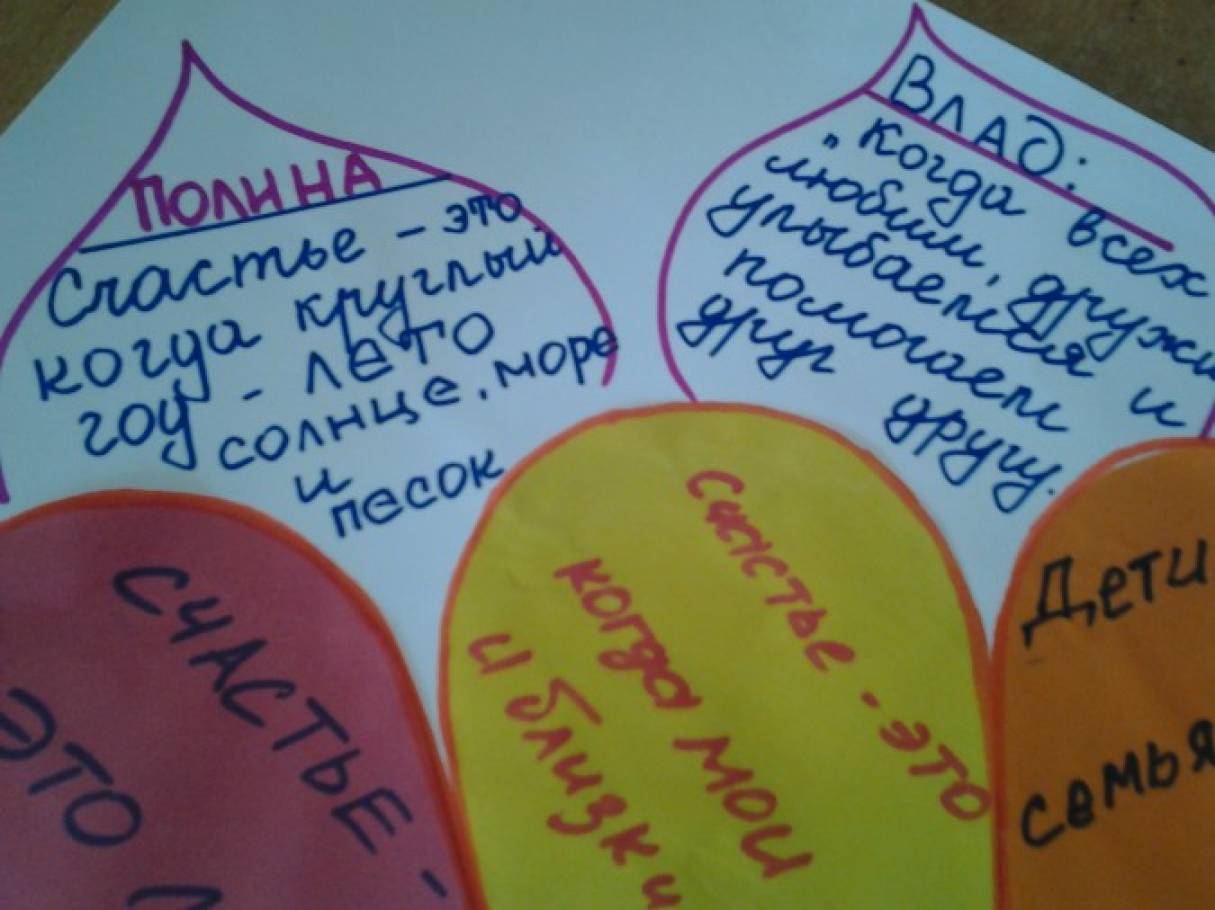 ПОЛИНА
Счастье - это
когда круглый
год - лето
солнце, море
и
песок
ВЛАД:
"когда всех
любим, дружи
улыбаемся и
помогаем
друг другу.
СЧАСТЬЕ -
ЭТО
СЧАСТЬЕ - ЭТО
когда мои
и близки
Дети
семья